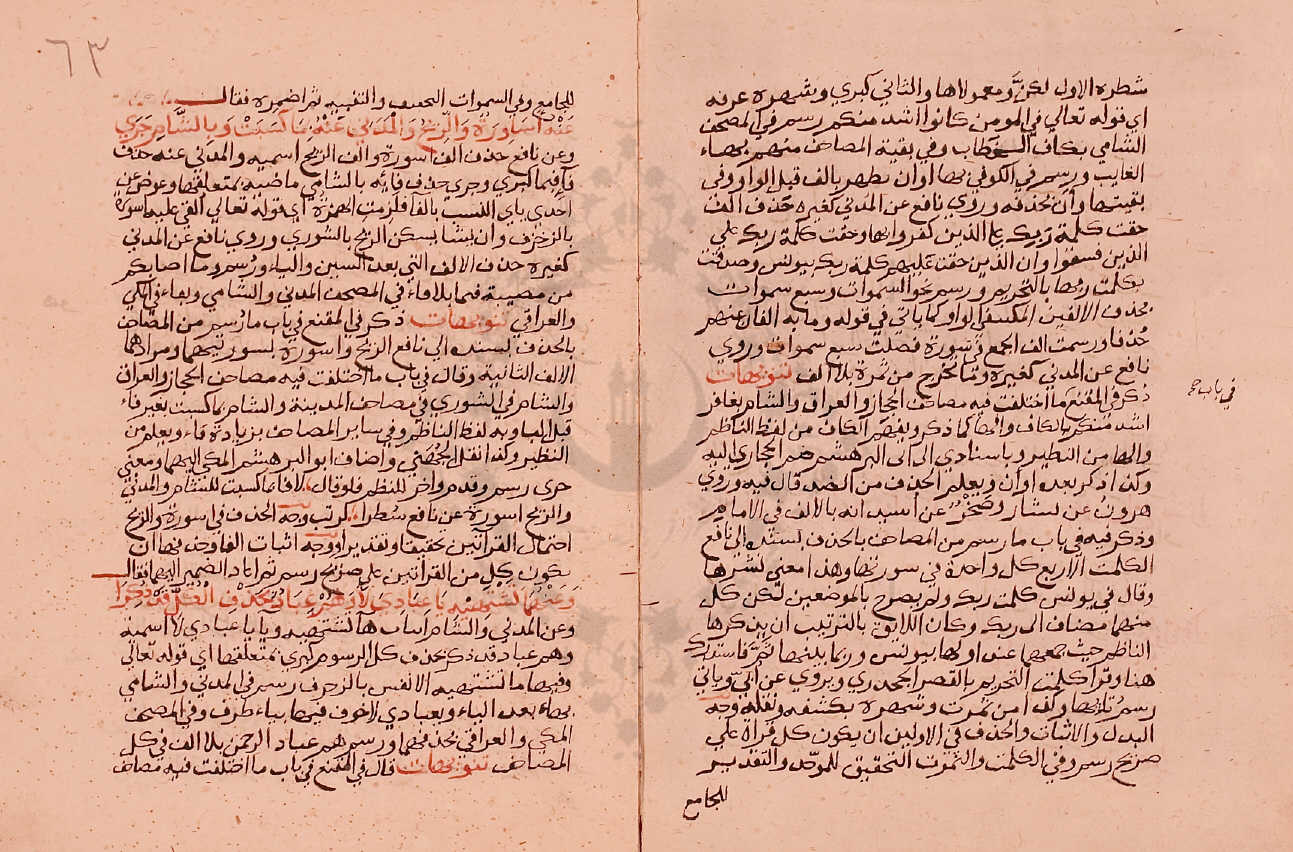 شطره الاول لكن ومعمولاها والثاني كبري وبشهره عرفه
اي قوله تعالي في المومن كانوا اشد منكم رسم في المصحف
الشامي بكاف الخطاب وفي بقية المصاحف منهم بهاء
الغايب ورسم في الكوفي بها او ان يظهر بالف قبل الواو وفي
بقيتها وأن بحذفه وروي نافع عن المدني كغيره حذف الف
حقت كلمة ربك علي الذين كفروا بها وحقت كلمة ربك علي
الذين فسقوا وان الذين حقت عليهم كلمة ربك بيونس وصدقت
بكلمت ربها بالتحريم ورسم نحو السموات وسبع سموات
بحذف الالفين المكتنفي الواو كما ياتي في قوله وما به الفان عنهم
حذفا ورسمت الف الجمع في سورة فصلت سبع سموات وروي
نافع عن المدني كغيره وما تخرج من ثمرة بلا الف تنويهات
ذكر في المقنع ما اختلفت فيه مصاحف الحجاز والعراق والشام بغافر
اشد منكم بالكاف وانها كما ذكر ويفهم الكاف من لفظ الناظم
والها من النظير وباسنادي الي الي البرهشم هم الحجازي اليه
وكذا ذكر بعده او ان ويعلم الحذف من الضد قال فيه وروي
هرون عن بشار وصخر عن اسيد انه بالالف في الامام
وذكر فيه في باب ما رسم من المصاحف بالحذف بسنده الي نافع
الكلمت الاربع كل واحدة في سورتها وهذا معني نشرها
وقال في يونس كلمت ربك ولم يصرح بالموضعين لكن كل
منهما مضاف الي ربك وكان اللايق بالترتيب ان يذكرها
الناظم حيث جمعها عند اولها بيونس وربما بينها ثم فاستدرك
هنا وقرا كلمت التحريم بالقصر الجحدري ويروي عن ابي وياتي
رسم تلثها وثمه من ثمرت وشهره بكشفه ونقله وجه
البدل والاثبات والحذف في الاولين ان يكون كل قراة علي
صريح رسم وفي الكلمت والثمرت التحقيق للموحد والتقدير
للجامع
في باب ج
٦٣
للجامع وفي السموات التخفيف والتنبيه ثم اضمره فقال
عنه اساورة والريح والمدني عنه بما كسبت وبالشام جري
وعن نافع حذف الف اسورة والف الريح اسميه والمدني عنه حذف
فا فبما كبري وجري حذف فايه بالشامي ماضيه بمتعلقها وعوض عن
احدي ياي النسب بالفا فلزمت الهمزة اي قوله تعالي القي عليه اسورة
بالزخرف وان يشا يسكن الريح بالشوري وروي نافع عن المدني
كغيره حذف الالف التي بعد السين والياء ورسم وما اصابكم
من مصيبة فبما بلا فاء في المصحف المدني والشامي وبفاء في المكي
والعراقي تنويهات ذكر في المقنع في باب ما رسم من المصاحف
بالحذف بسنده الي نافع الريح واسورة بسورتيهما ومرادهما
الالف الثانية وقال في باب ما اختلفت فيه مصاحف الحجاز والعراق
والشام في الشوري في مصاحف المدينة والشام بما كسبت بغير فاء
قبل الباء وبه لفظ الناظم وفي ساير المصاحف بزيادة فاء ويعلم من
النظير وكذا نقل الجهضمي واضاف ابو البرهشم المكي اليهما ومعني
جري رسم وقدم واخر للنظم فلو قال لا فا بما كسبت للشام والمدني
والريح اسورة عن نافع سطرا لرتب وجه الحذف في اسورة والريح
احتمال القراتين تحقيقا وتقديرا ووجه اثبات الفا وحذفها ان
يكون كل من القراتين علي صريح رسم ثم اعاد الضمير اليهما فقال
وعنهما تشتهيه يا عبادي لا وهم عباد بحذف الكل قد ذكرا
وعن المدني والشام اثبات ها تشتهيه ويا يا عبادي لا اسمية
وهم عباد قد ذكر بحذف كل الرسوم كبري بمتعلقها اي قوله تعالي
وفيها ما تشتهيه الانفس بالزخرف رسم في المدني والشامي
بهاء بعد الياء ويعبادي لا خوف فيها بياء طرف وفي المصحف
المكي والعراقي بحذفهما ورسم هم عباد الرحمن بلا الف في كل
المصاحف تنويهات قال في المقنع في باب ما اختلفت فيه مصاحف